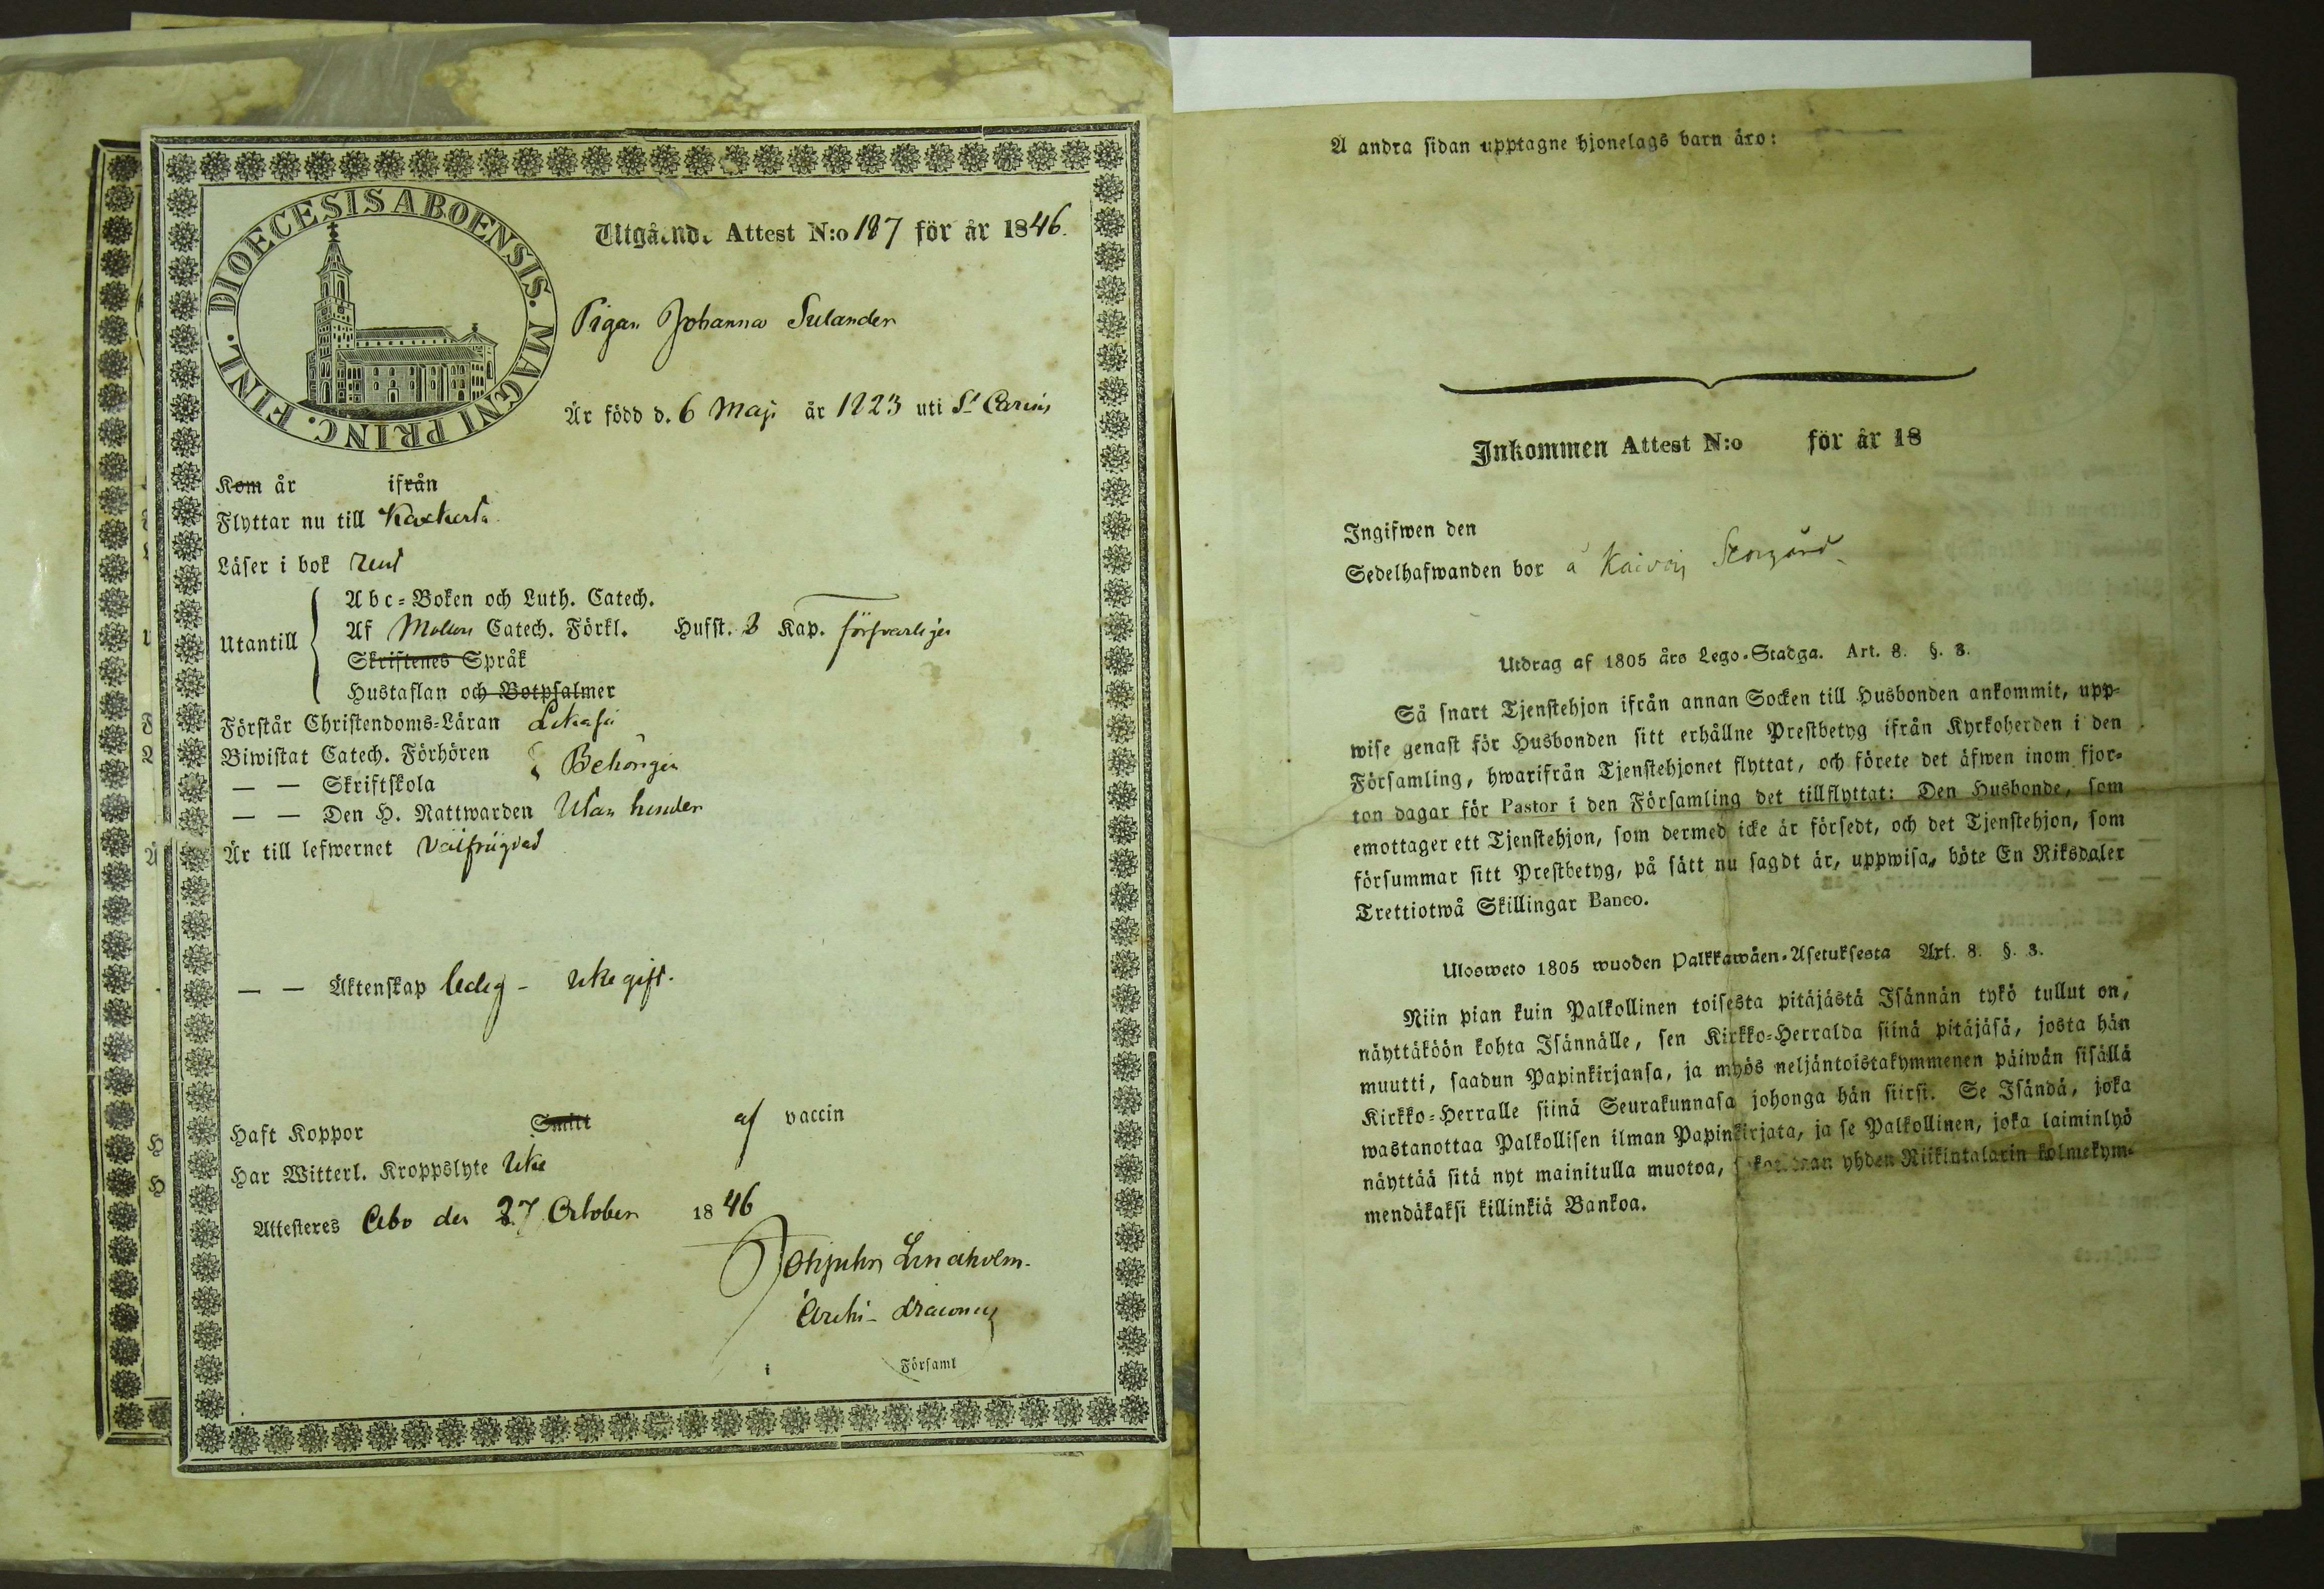 DIOECESIS ABOENSIS. MAGNI PRINC. FINL.
Utgående Attest N:o 187 för år 1846.
Pigan Johanna Sulander
Är född d. 6 Maji år 1823 uti S:t Carins
Kom år ifrån
Flyttar nu till Kackerta
Läser i bok rent
Utantill
Abc-Boken och Luth. Catech.
Af Catech. Förkl. Husst. 3 Kap. försvarligen
Skriftenes Språk
Hustaflan och Botpsalmer
Förstår Christendoms-Läran
Biwistat Catech. Förhören
Behörigen
— — Skriftskola
— — Den H. Nattwarden Utan hinder
Är till lefwernet välfrägdad
— — Äktenskap ledig - icke gift.
Haft Koppor Smitt af vaccin
Har Witterl. Kroppslyte icke
Attesteres Åbo den 27 October 1846
Lindholm.
Archi-Diaconus
i Församl
A andra sidan upptagne hjonelags barn äro:
Inkommen Attest N:o för år 18
Ingifwen den
Sedelhafwanden bor å Storgård
Utdrag af 1805 års Lego-Stadga. Art. 8. §. 3.
Så snart Tjenstehjon ifrån annan Socken till Husbonden ankommit, upp-
wise genast för Husbonden sitt erhållne Prestbetyg ifrån Kyrkoherden i den
Församling, hwarifrån Tjenstehjonet flyttat, och förete det äfwen inom fjor-
ton dagar för Pastor i den Församling det tillflyttat: Den Husbonde, som
emottager ett Tjenstehjon, som dermed icke är försedt, och det Tjenstehjon, som
försummar sitt Prestbetyg, på sätt nu sagdt är, uppwisa, böte En Riksdaler
Trettiotwå Skillingar Banco.
Ulosweto 1805 wuoden Palkkawäen-Asetuksesta Art. 8. §. 3.
Niin pian kuin Palkollinen toisesta pitäjästä Isännän tykö tullut on,
näyttäköön kohta Isännälle, sen Kirkko-Herralda siinä pitäjäsä, josta hän
muutti, saadun Papinkirjansa, ja myös neljäntoistakymmenen päiwän sisällä
Kirkko-Herralle siinä Seurakunnasa johonga hän siirsi. Se Isändä, joka
wastanottaa Palkollisen ilman Papinkirjata, ja se Palkollinen, joka laiminlyö
näyttää sitä nyt mainitulla muotoa, yhden Riikintalarin kolmekym-
mendäkaksi killinkiä Bankoa.